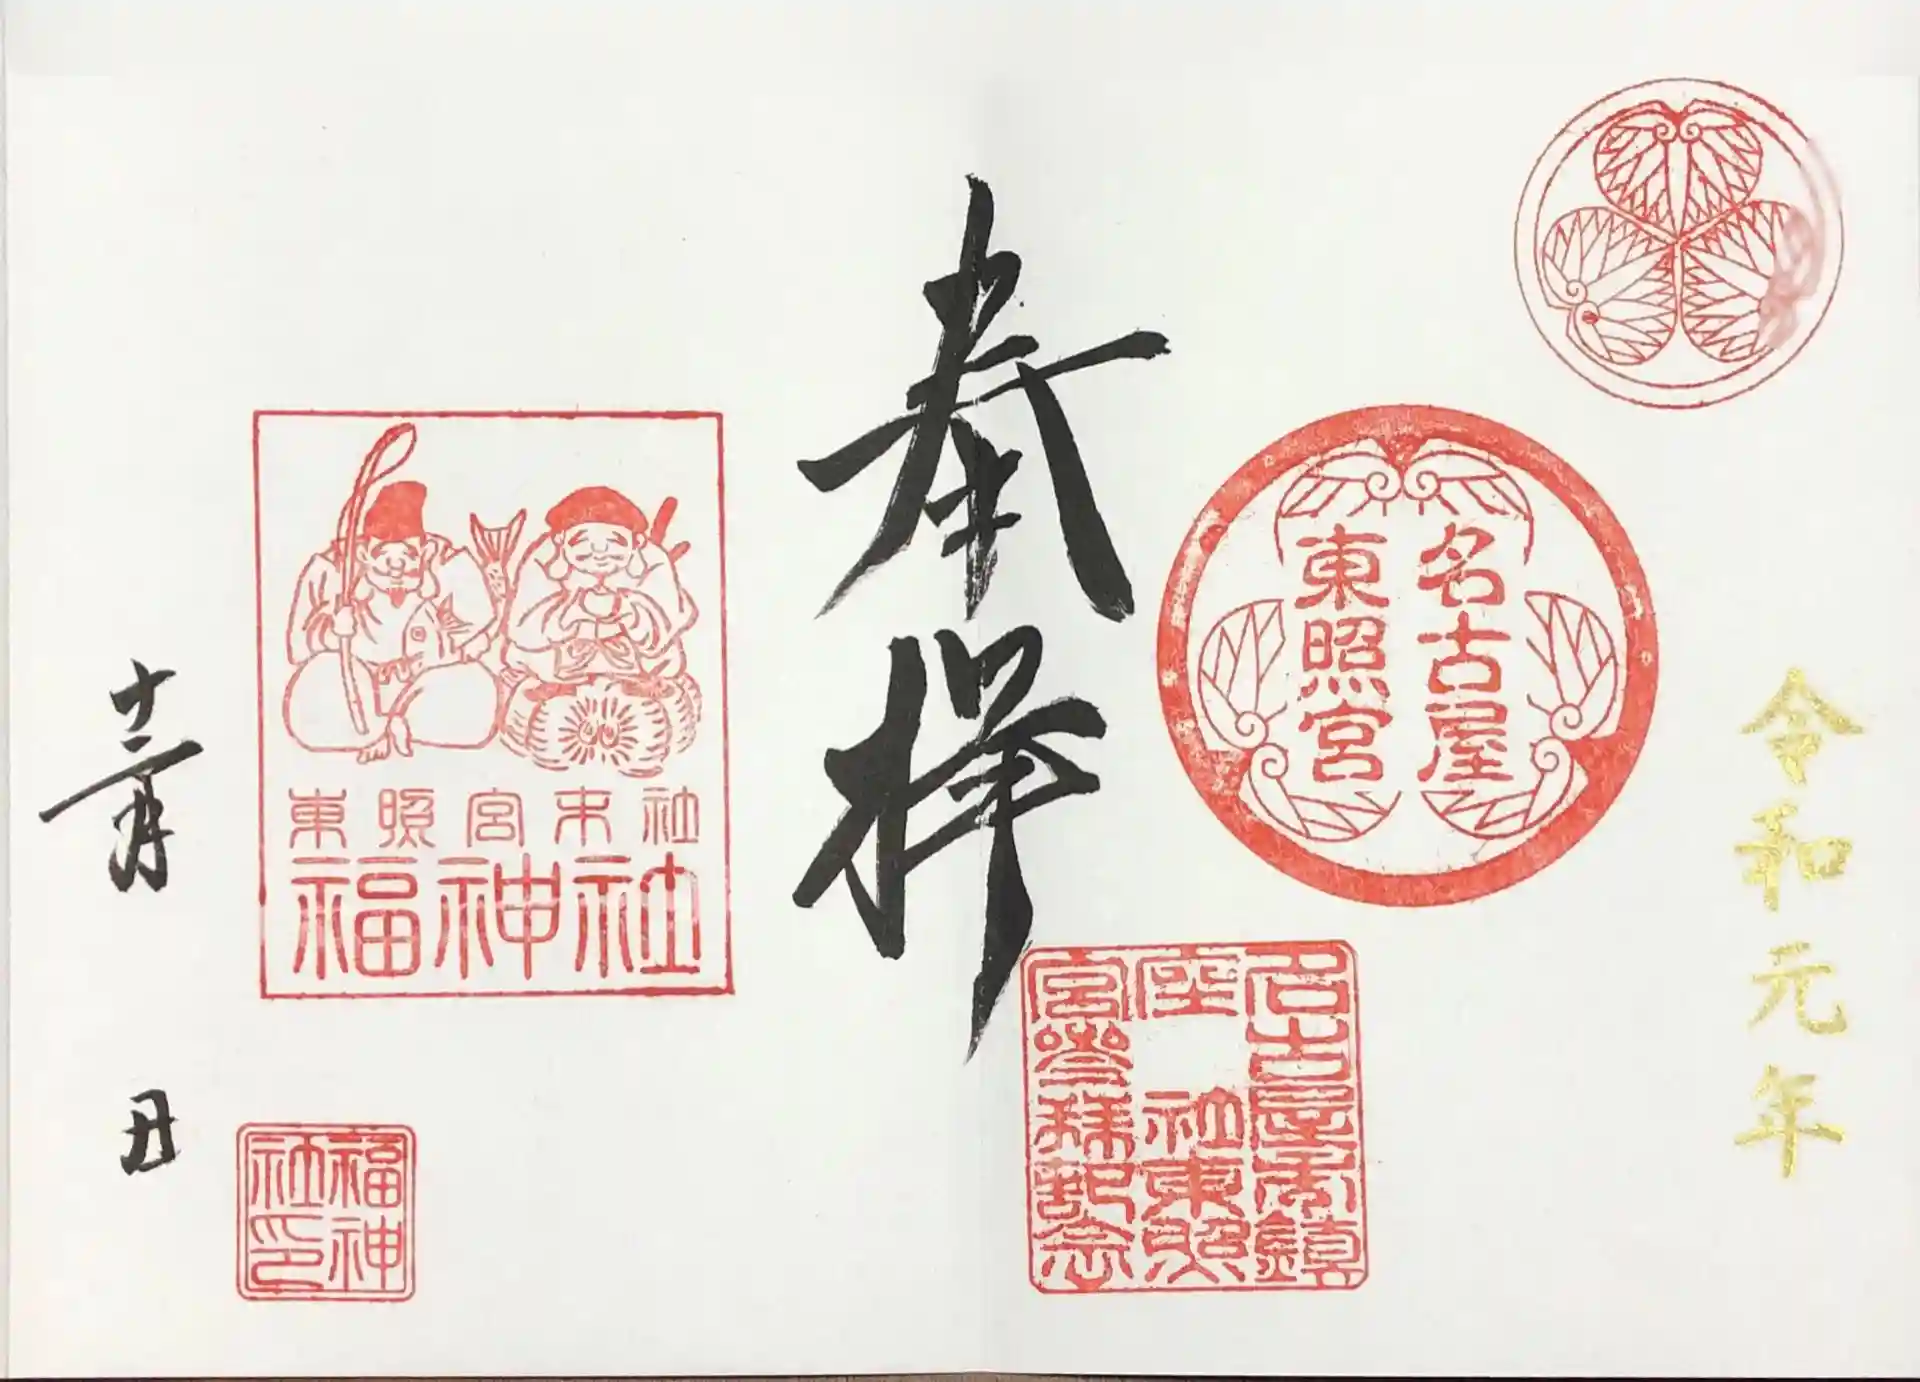 令和元年
名古屋
東照宮
名古屋市鎮
座 社東照
宮參拜記念
奉拝
東照宮末社
福神社
福神
社印
十二月 日